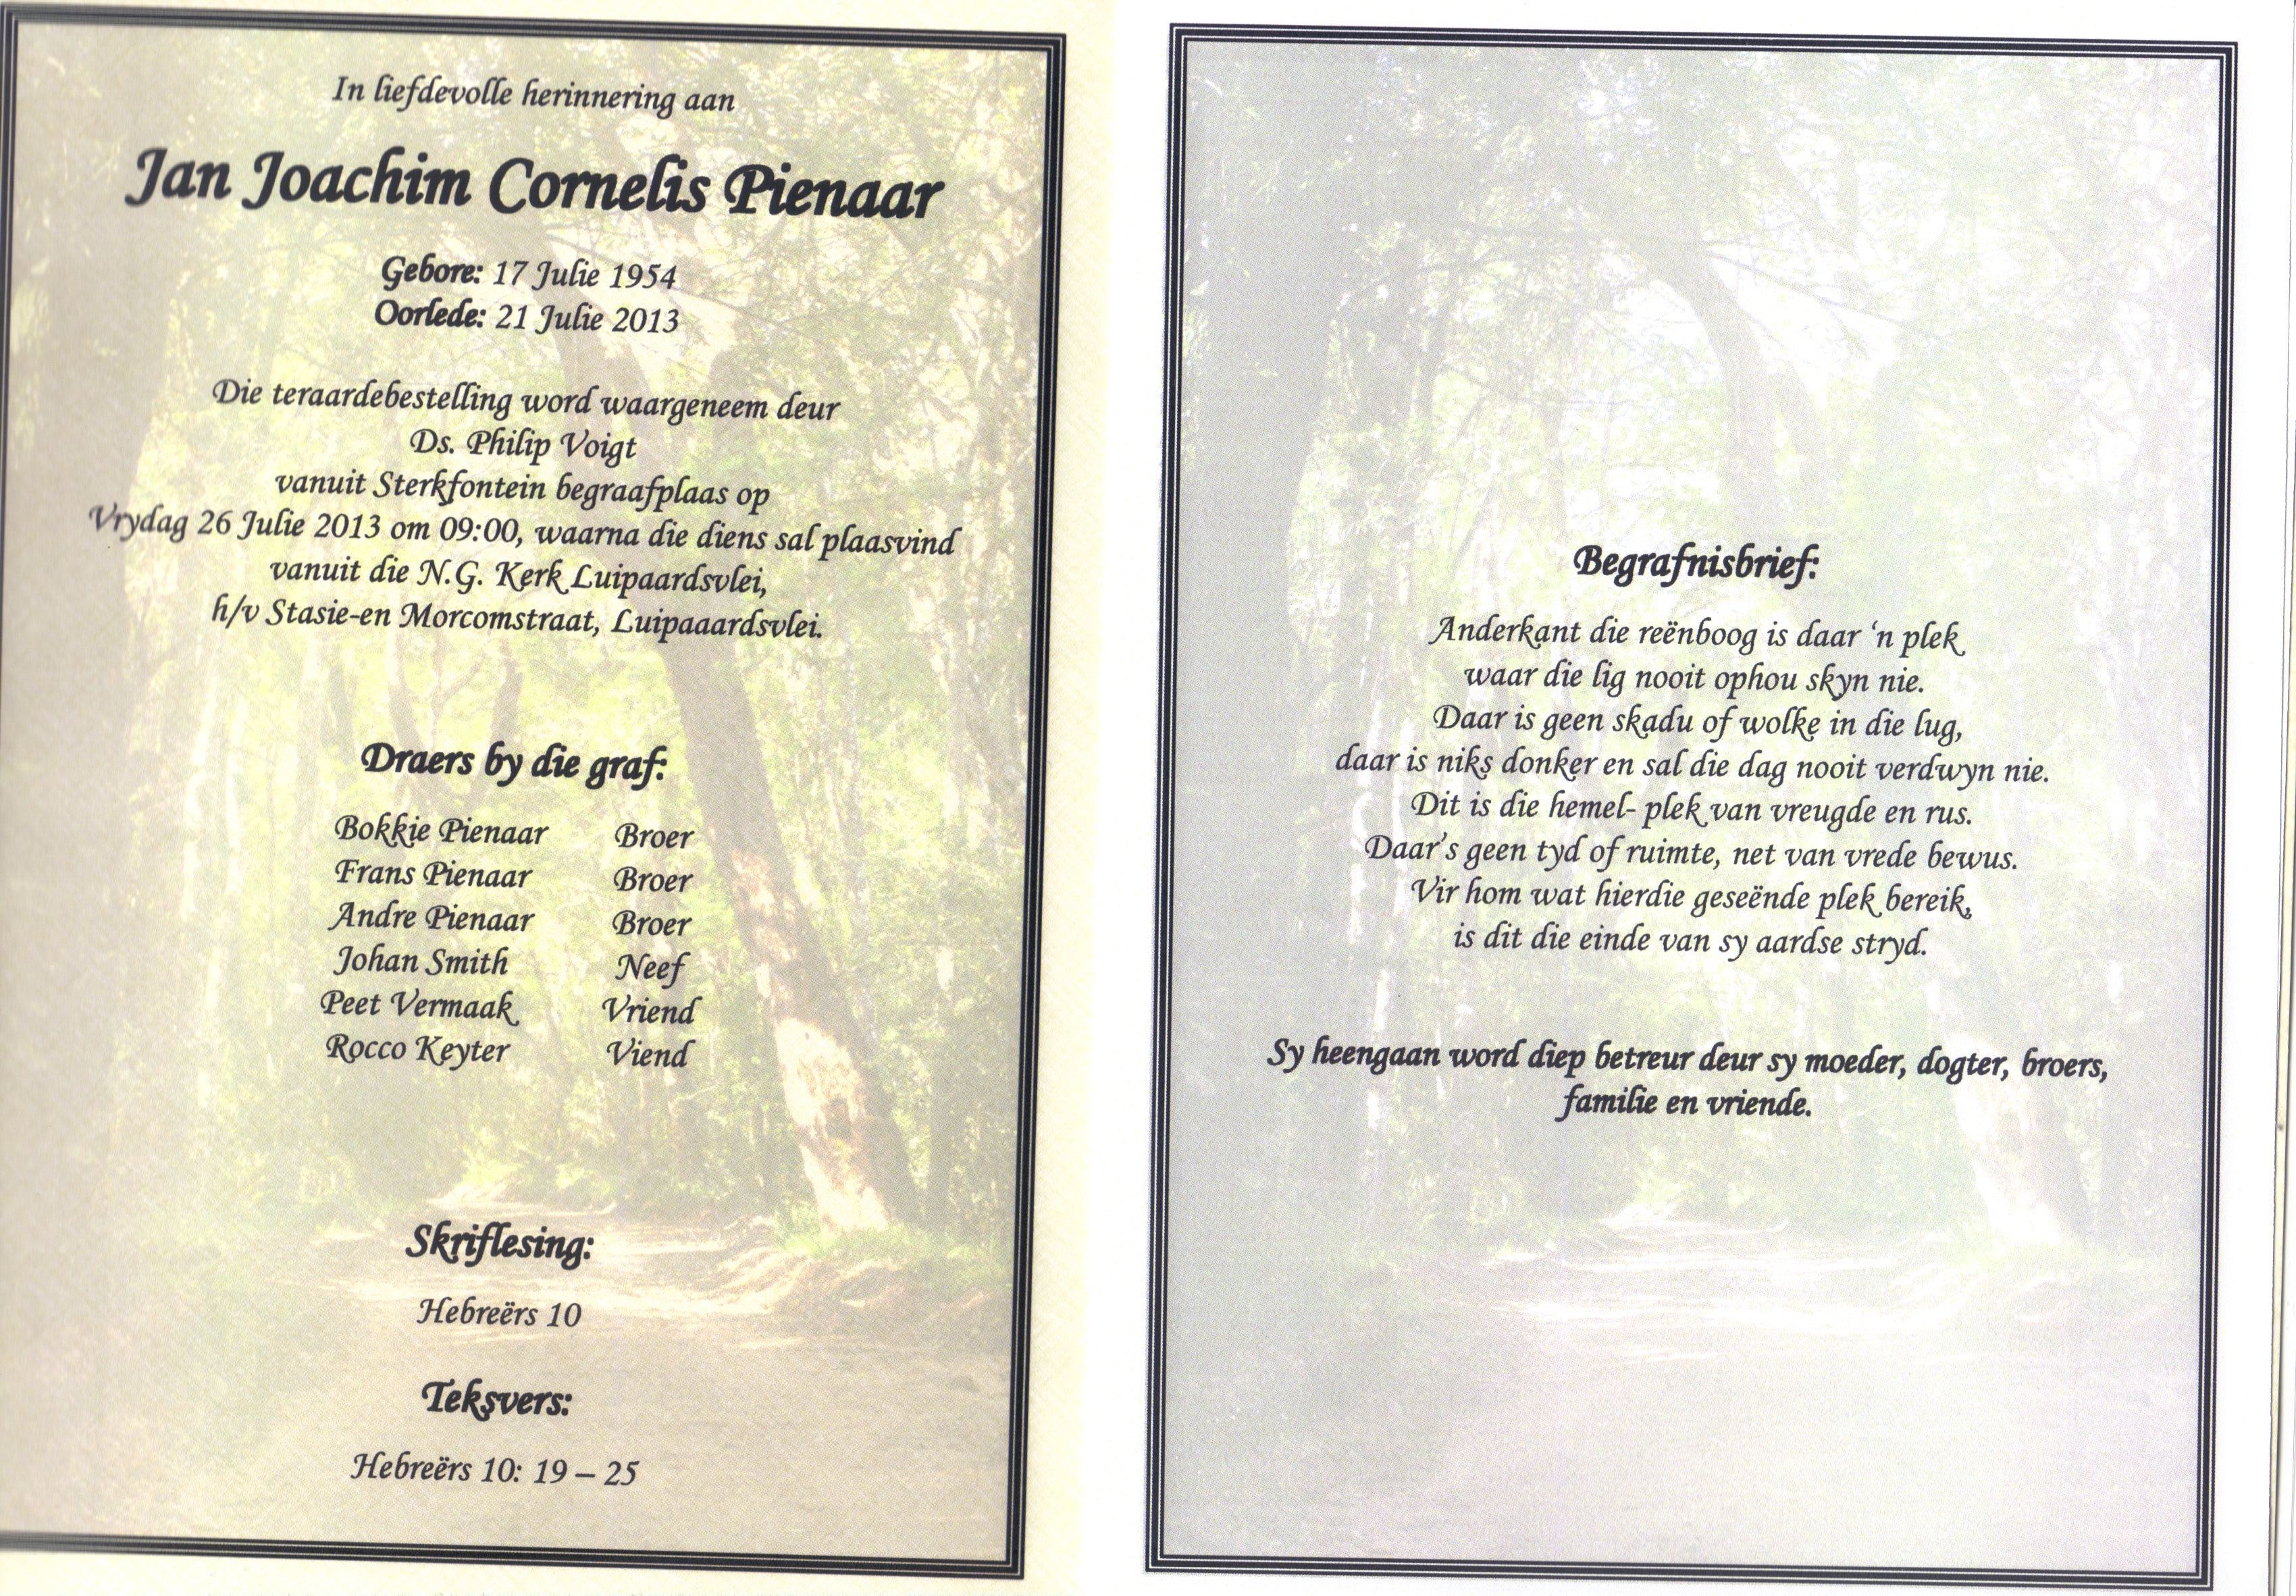 In liefdevolle herinnering aan
Jan Joachim Cornelis Pienaar
Gebore: 17 Julie 1954
Oorlede: 21 Julie 2013
Die teraardebestelling word waargeneem deur
Ds. Philip Voigt
vanuit Sterkfontein begraafplaas op
Vrydag 26 Julie 2013 om 09:00, waarna die diens sal plaasvind
vanuit die N.G. Kerk Luipaardsvlei,
h/v Stasie-en Morcomstraat, Luipaaardsvlei.
Draers by die graf:
Bokkie Pienaar Broer
Frans Pienaar Broer
Andre Pienaar Broer
Johan Smith Neef
Peet Vermaak Vriend
Rocco Keyter Viend
Skriflesing:
Hebreërs 10
Teksvers:
Hebreërs 10: 19 – 25
Begrafnisbrief:
Anderkant die reënboog is daar ‘n plek
waar die lig nooit ophou skyn nie.
Daar is geen skadu of wolke in die lug,
daar is niks donker en sal die dag nooit verdwyn nie.
Dit is die hemel- plek van vreugde en rus.
Daar's geen tyd of ruimte, net van vrede bewus.
Vir hom wat hierdie geseënde plek bereik,
is dit die einde van sy aardse stryd.
Sy heengaan word diep betreur deur sy moeder, dogter, broers,
familie en vriende.